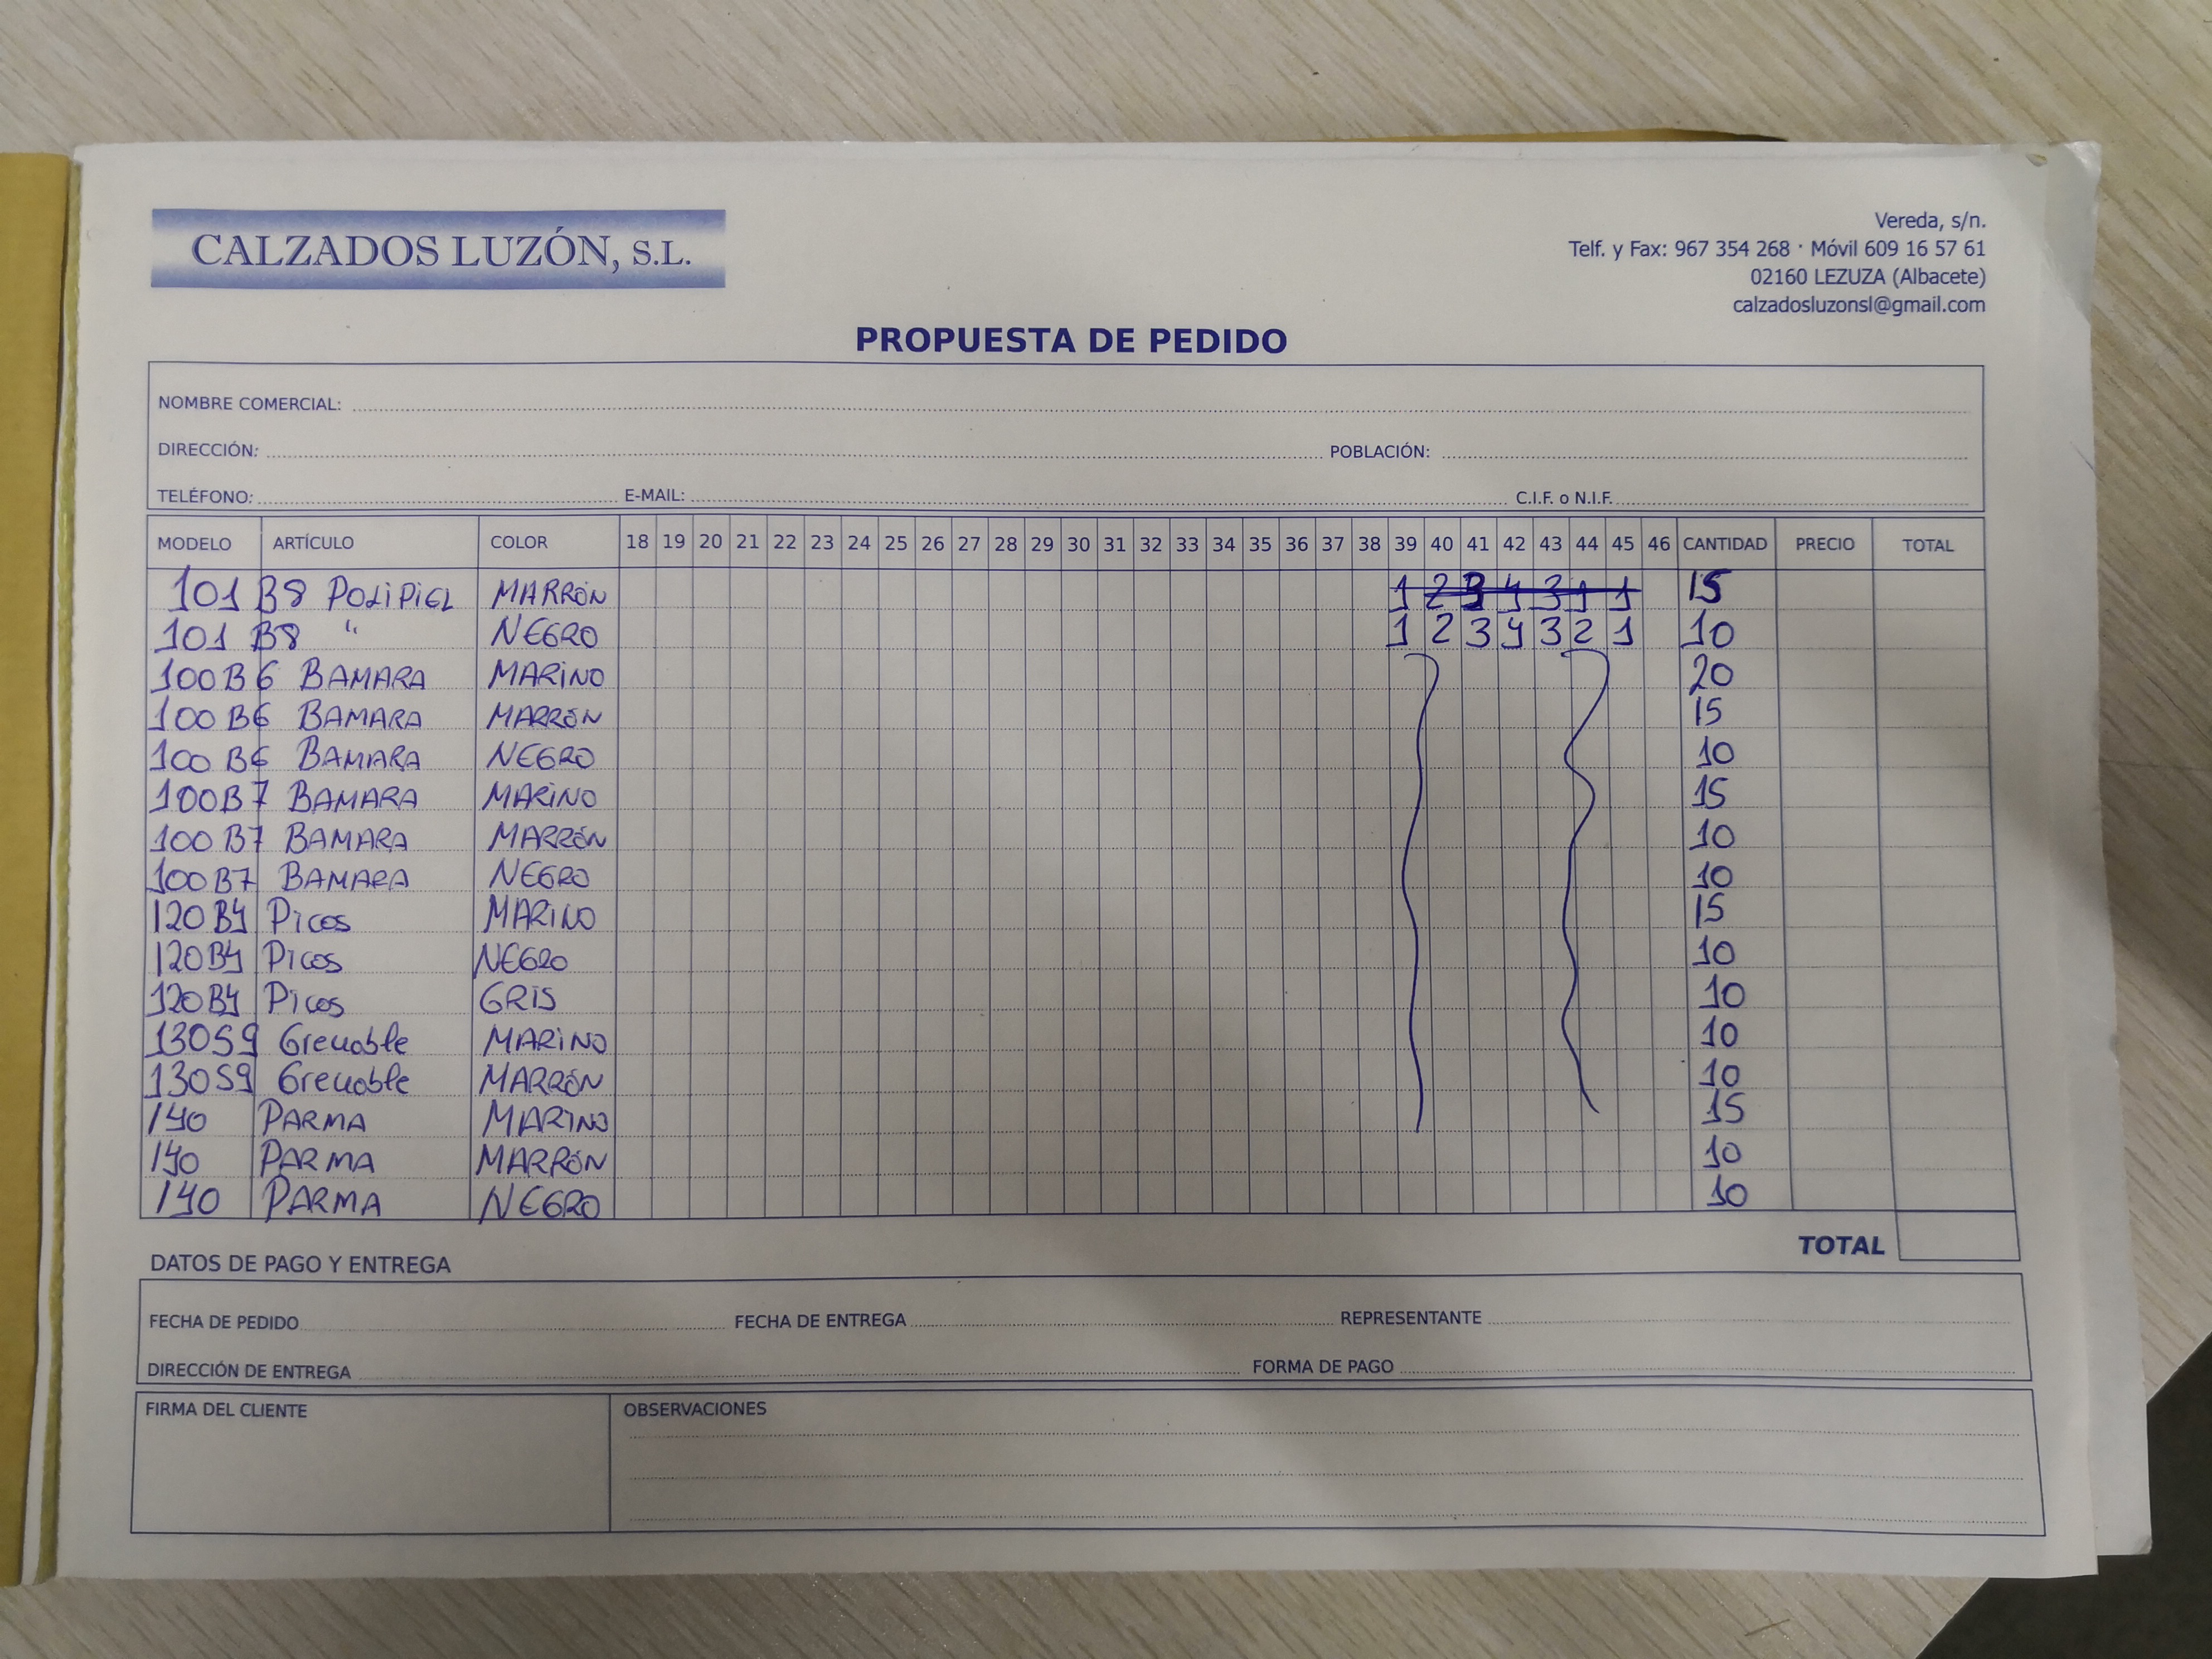 CALZADOS LUZÓN, S.L.
Vereda, s/n.
Telf. y Fax: 967 354 268 · Móvil 609 16 57 61
02160 LEZUZA (Albacete)
calzadosluzonsl@gmail.com
PROPUESTA DE PEDIDO
NOMBRE COMERCIAL:
DIRECCIÓN: POBLACIÓN:
TELÉFONO: E-MAIL: C.I.F. o N.I.F.
MODELO ARTÍCULO COLOR 18 19 20 21 22 23 24 25 26 27 28 29 30 31 32 33 34 35 36 37 38 39 40 41 42 43 44 45 46 CANTIDAD PRECIO TOTAL
101 B8 POLIPIEL MARRÓN 1 2 3 4 3 1 1 15
101 B8 " NEGRO 1 2 3 4 3 2 1 10
100 B6 BAMARA MARINO 20
100 B6 BAMARA MARRÓN 15
100 B6 BAMARA NEGRO 10
100 B7 BAMARA MARINO 15
100 B7 BAMARA MARRÓN 10
100 B7 BAMARA NEGRO 10
120 B4 Picos MARINO 15
120 B4 Picos NEGRO 10
120 B4 Picos GRIS 10
130 S9 Grenoble MARINO 10
130 S9 Grenoble MARRÓN 10
140 PARMA MARINO 15
140 PARMA MARRÓN 10
140 PARMA NEGRO 10
TOTAL
DATOS DE PAGO Y ENTREGA
FECHA DE PEDIDO FECHA DE ENTREGA REPRESENTANTE
DIRECCIÓN DE ENTREGA FORMA DE PAGO
FIRMA DEL CLIENTE OBSERVACIONES